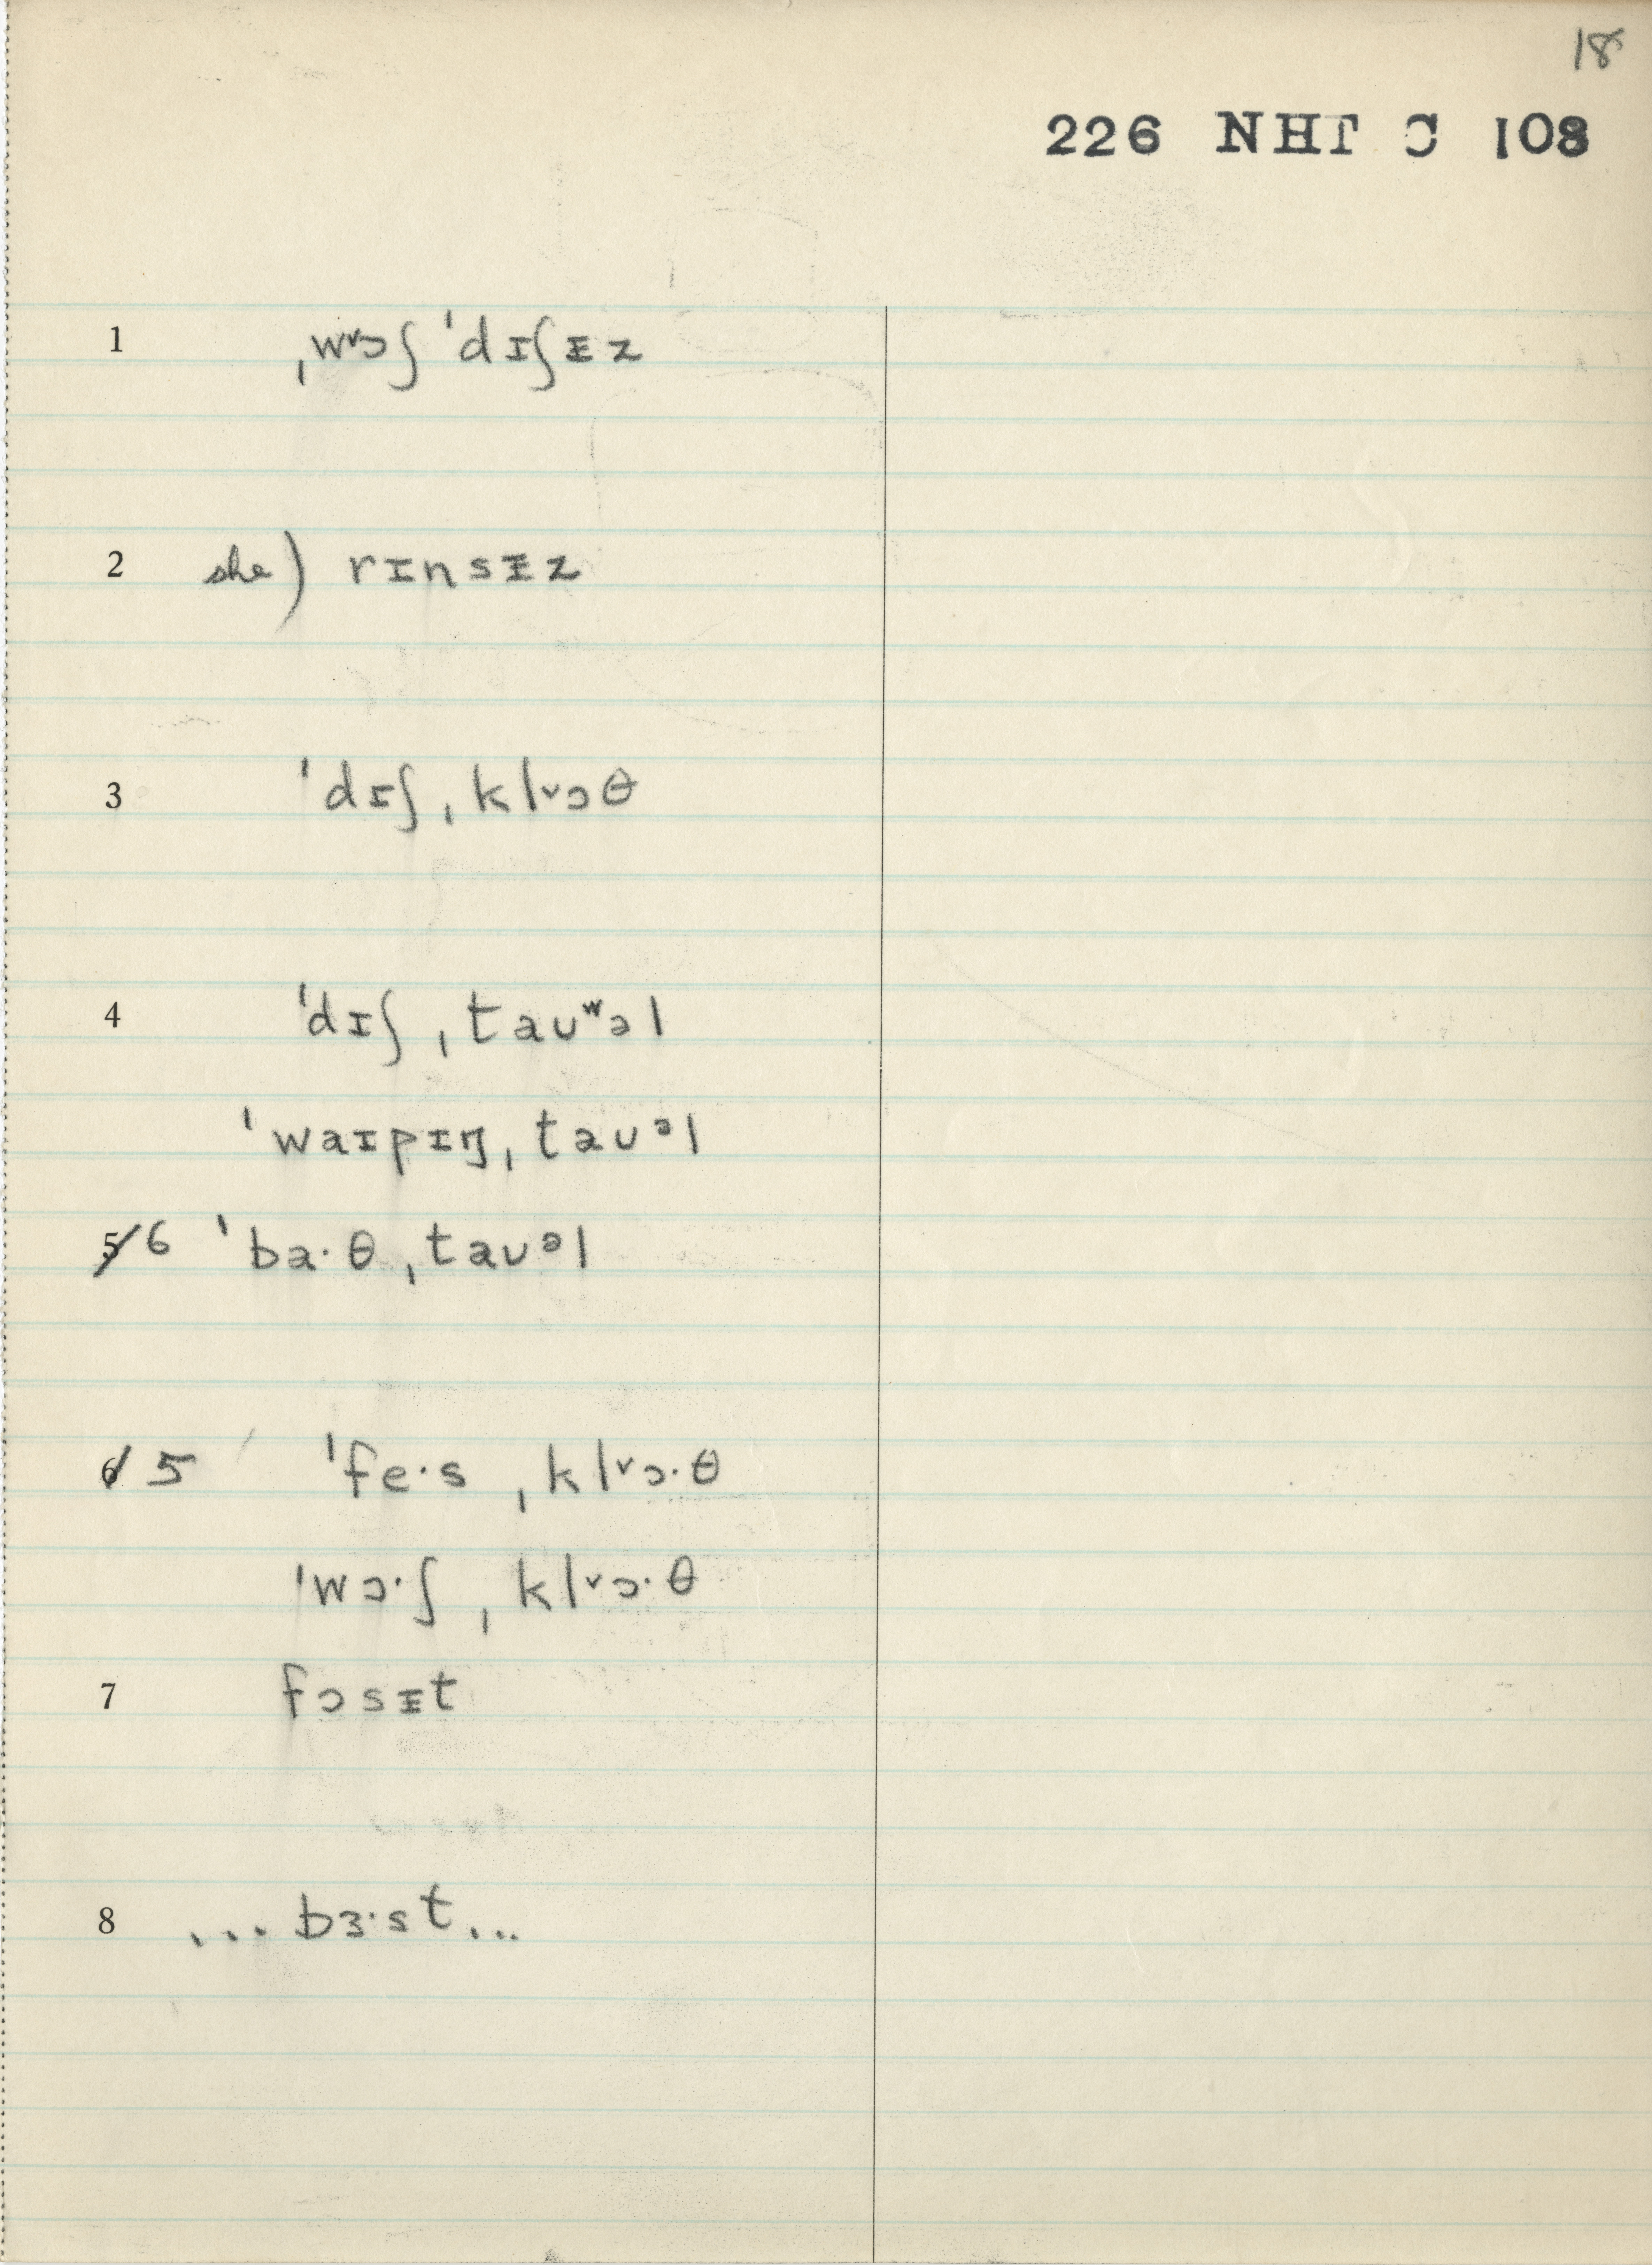 18
226 NHT C 108
1 ˌwᵛɔʃ ˈdɪʃᵻz
2 she) rɪnsᵻz
3 ˈdɪʃˌklᵛɔθ
4 ˈdɪʃˌtaʊʷəl
ˈwaɪpɪŋˌtaʊᵊl
5/6 ˈba·θˌtaʊᵊl
6/5 ˈfe·sˌklᵛɔ·θ
ˈwɔ·ʃˌklᵛɔ·θ
7 fɔsᵻt
8 ...bɜ·st...